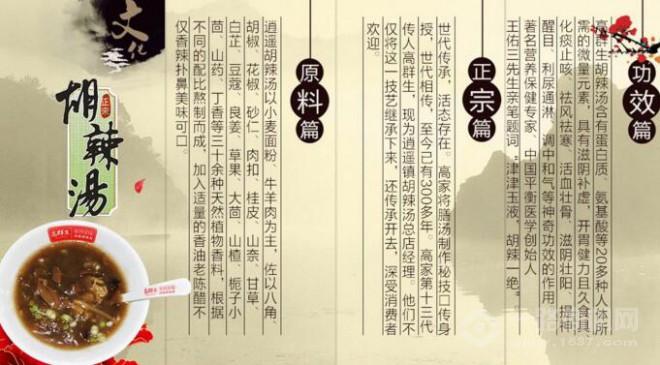 功效篇
高群生胡辣汤含有蛋白质、氨基酸等20多种人体所
需的微量元素，具有滋阴补虚，开胃健力且久食具
化痰止咳、祛风祛寒、活血壮骨、滋阴壮阳、提神
醒目、利尿通淋、调中和气等神奇功效的作用。
著名营养保健专家、中国平衡医学创始人
王佑三先生亲笔题词："津津玉液，胡辣一绝。"
正宗篇
世代传承，活态存在。高家将膳汤制作秘技口传身
授，世代相传，至今已有300多年。高家第十三代
传人高群生，现为逍遥镇胡辣汤总店经理。他们不
仅将这一技艺继承下来，还传承开去，深受消费者
欢迎。
原料篇
逍遥胡辣汤以小麦面粉、牛羊肉为主，佐以八角、
胡椒、花椒、砂仁、肉扣、桂皮、山奈、甘草、
白芷、豆蔻、良姜、草果、大茴、山楂、栀子小
茴、山药、丁香等三十余种天然植物香料，根据
不同的配比熬制而成，加入适量的香油老陈醋不
仅香辣扑鼻美味可口。
文化
正宗
胡辣汤
高群生
www.1637.com